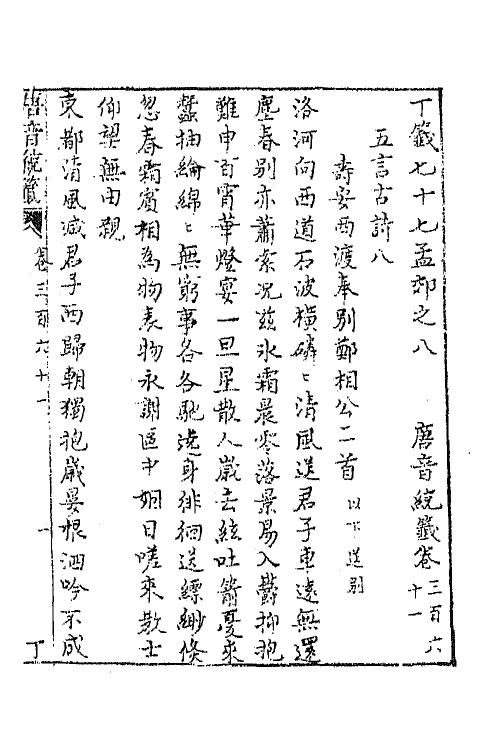 丁籖七十七孟郊之八　唐音統籖卷三百六十一
五言古詩八
壽安西渡奉別鄭相公二首以下送別
洛河向西道石波橫磷〻清風送君子車遠無還
塵春別亦蕭索况兹氷霜晨零落景易入鬱抑抱
難申百宵華燈宴一旦星散人歲去絃吐箭憂來
蠶抽綸綿〻無窮事各各馳遶身徘徊送縹緲倏
忽春霜賓相為物表物永謝區中姻日嗟來教士
仰望無由親
東都清風減君子西歸朝獨抱歲晏恨泗吟不成
唐音統籖
卷三百六十一
一
丁